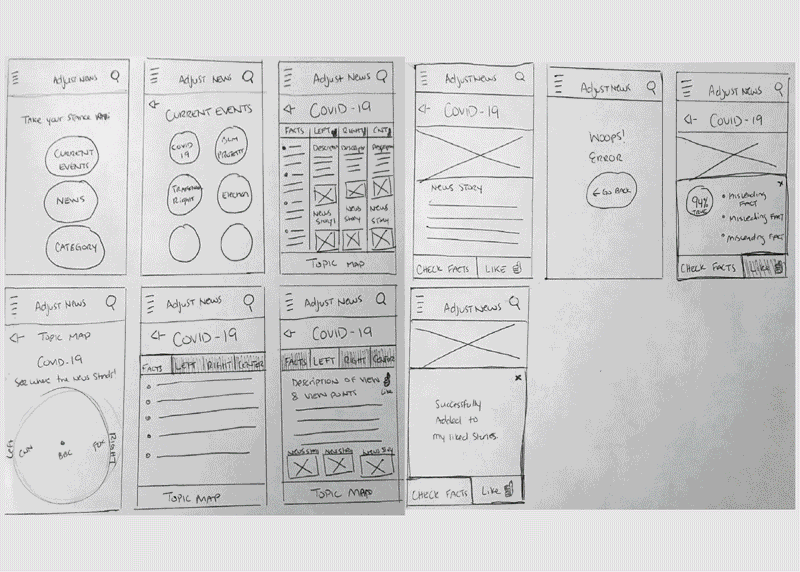 Adjust News
Take your stance
CURRENT EVENTS
NEWS
CATEGORY
Adjust News
CURRENT EVENTS
COVID 19
BLM PROTESTS
RIGHTS
ELECTION
Adjust News
COVID-19
FACTS LEFT RIGHT CNT
NEWS STORY
NEWS STORY
NEWS STORY
TOPIC MAP
Adjust News
COVID-19
NEWS STORY
CHECK FACTS LIKE
Adjust News
WOOPS!
ERROR
GO BACK
Adjust News
COVID-19
94% TRUE
• MISLEADING FACT
• MISLEADING FACT
• MISLEADING FACT
x
CHECK FACTS Like
Adjust News
TOPIC MAP
COVID-19
See where the News Stands!
Left
CNN
BBC
FOX
Right
Adjust News
COVID-19
FACTS LEFT RIGHT CENTER
TOPIC MAP
Adjust News
COVID-19
FACTS LEFT RIGHT CENTER
DESCRIPTION OF VIEW
& VIEW POINTS
Like
NEWS STORY NEWS STORY NEWS STORY
TOPIC MAP
Adjust News
x
Successfully
Added to
my liked Stories
CHECK FACTS Like